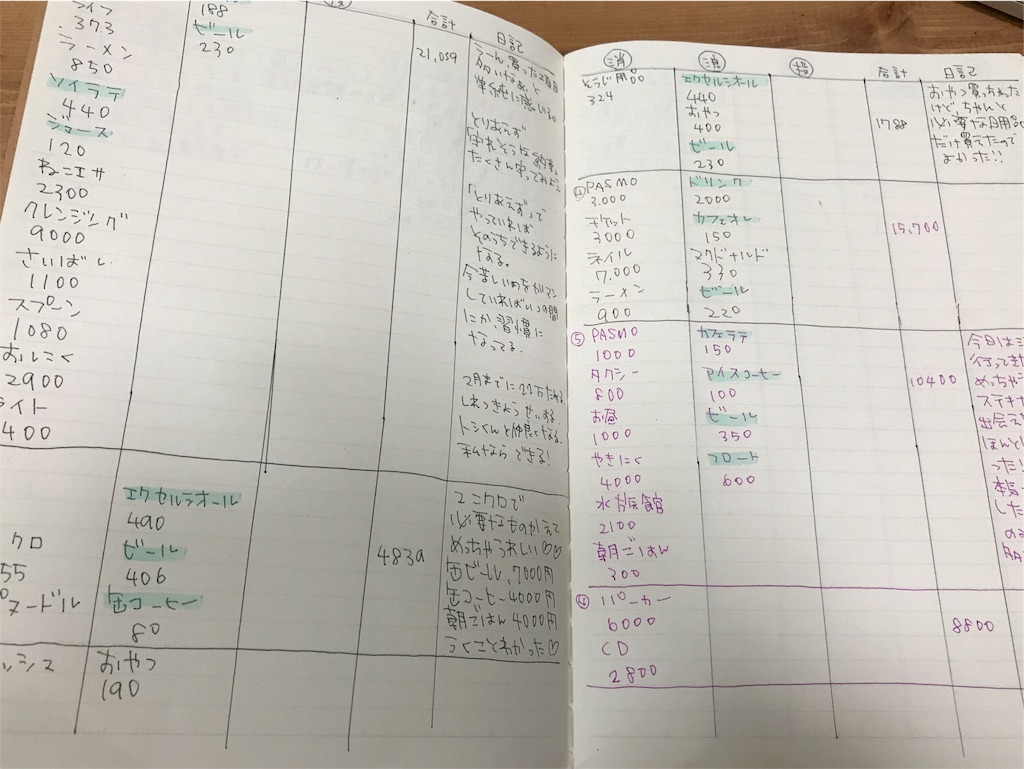 373
ラーメン
850
ソイラテ
440
ジュース
120
ねこエサ
2300
クレンジング
9000
さいばし
1100
スプーン
1080
おにく
2900
ライト
400
188
ビール
230
合計
21,059
日記
うーん買った項目
多いなあと
単純に感じいる。
とりあえず
「守れそうな約束」
たくさん守ってみよう。
「とりあえず」で
やっていれば
そのうちできるように
なる。
今苦しいのをガマン
していればいつの間
にか習慣に
なってる。
2月までに22万ためる
トシくんと仲良くなる。
私ならできる!
クロ
55
ヌードル
エクセルシオール
490
ビール
406
缶コーヒー
80
4839
ユニクロで
必要なものが買えて
めっちゃうれしい♡♡
缶ビール、7000円
缶コーヒー4000円
朝ごはん4000円
うくことわかった♡
おやつ
190
消
浪
投
合計
日記
そうじ用品
324
エクセルシオール
440
おやつ
400
ビール
230
1788
おやつ買っちゃった
けど、ちゃんと
必要な日用品
だけ買えたので
よかった!!
PASMO
3.000
チケット
3000
ネイル
7,000
ラーメン
900
ドリンク
2000
カフェオレ
150
マクドナルド
330
ビール
220
15,700
⑤ PASMO
1000
タクシー
800
お昼
1000
やきにく
4000
水族館
2100
朝ごはん
300
カフェラテ
150
アイスコーヒー
100
ビール
350
フロート
600
10400
今日は
行ってき
めっちゃ
ステキな
出会え
ほんと
った!
本気
した
パーカー
6000
CD
2800
8800